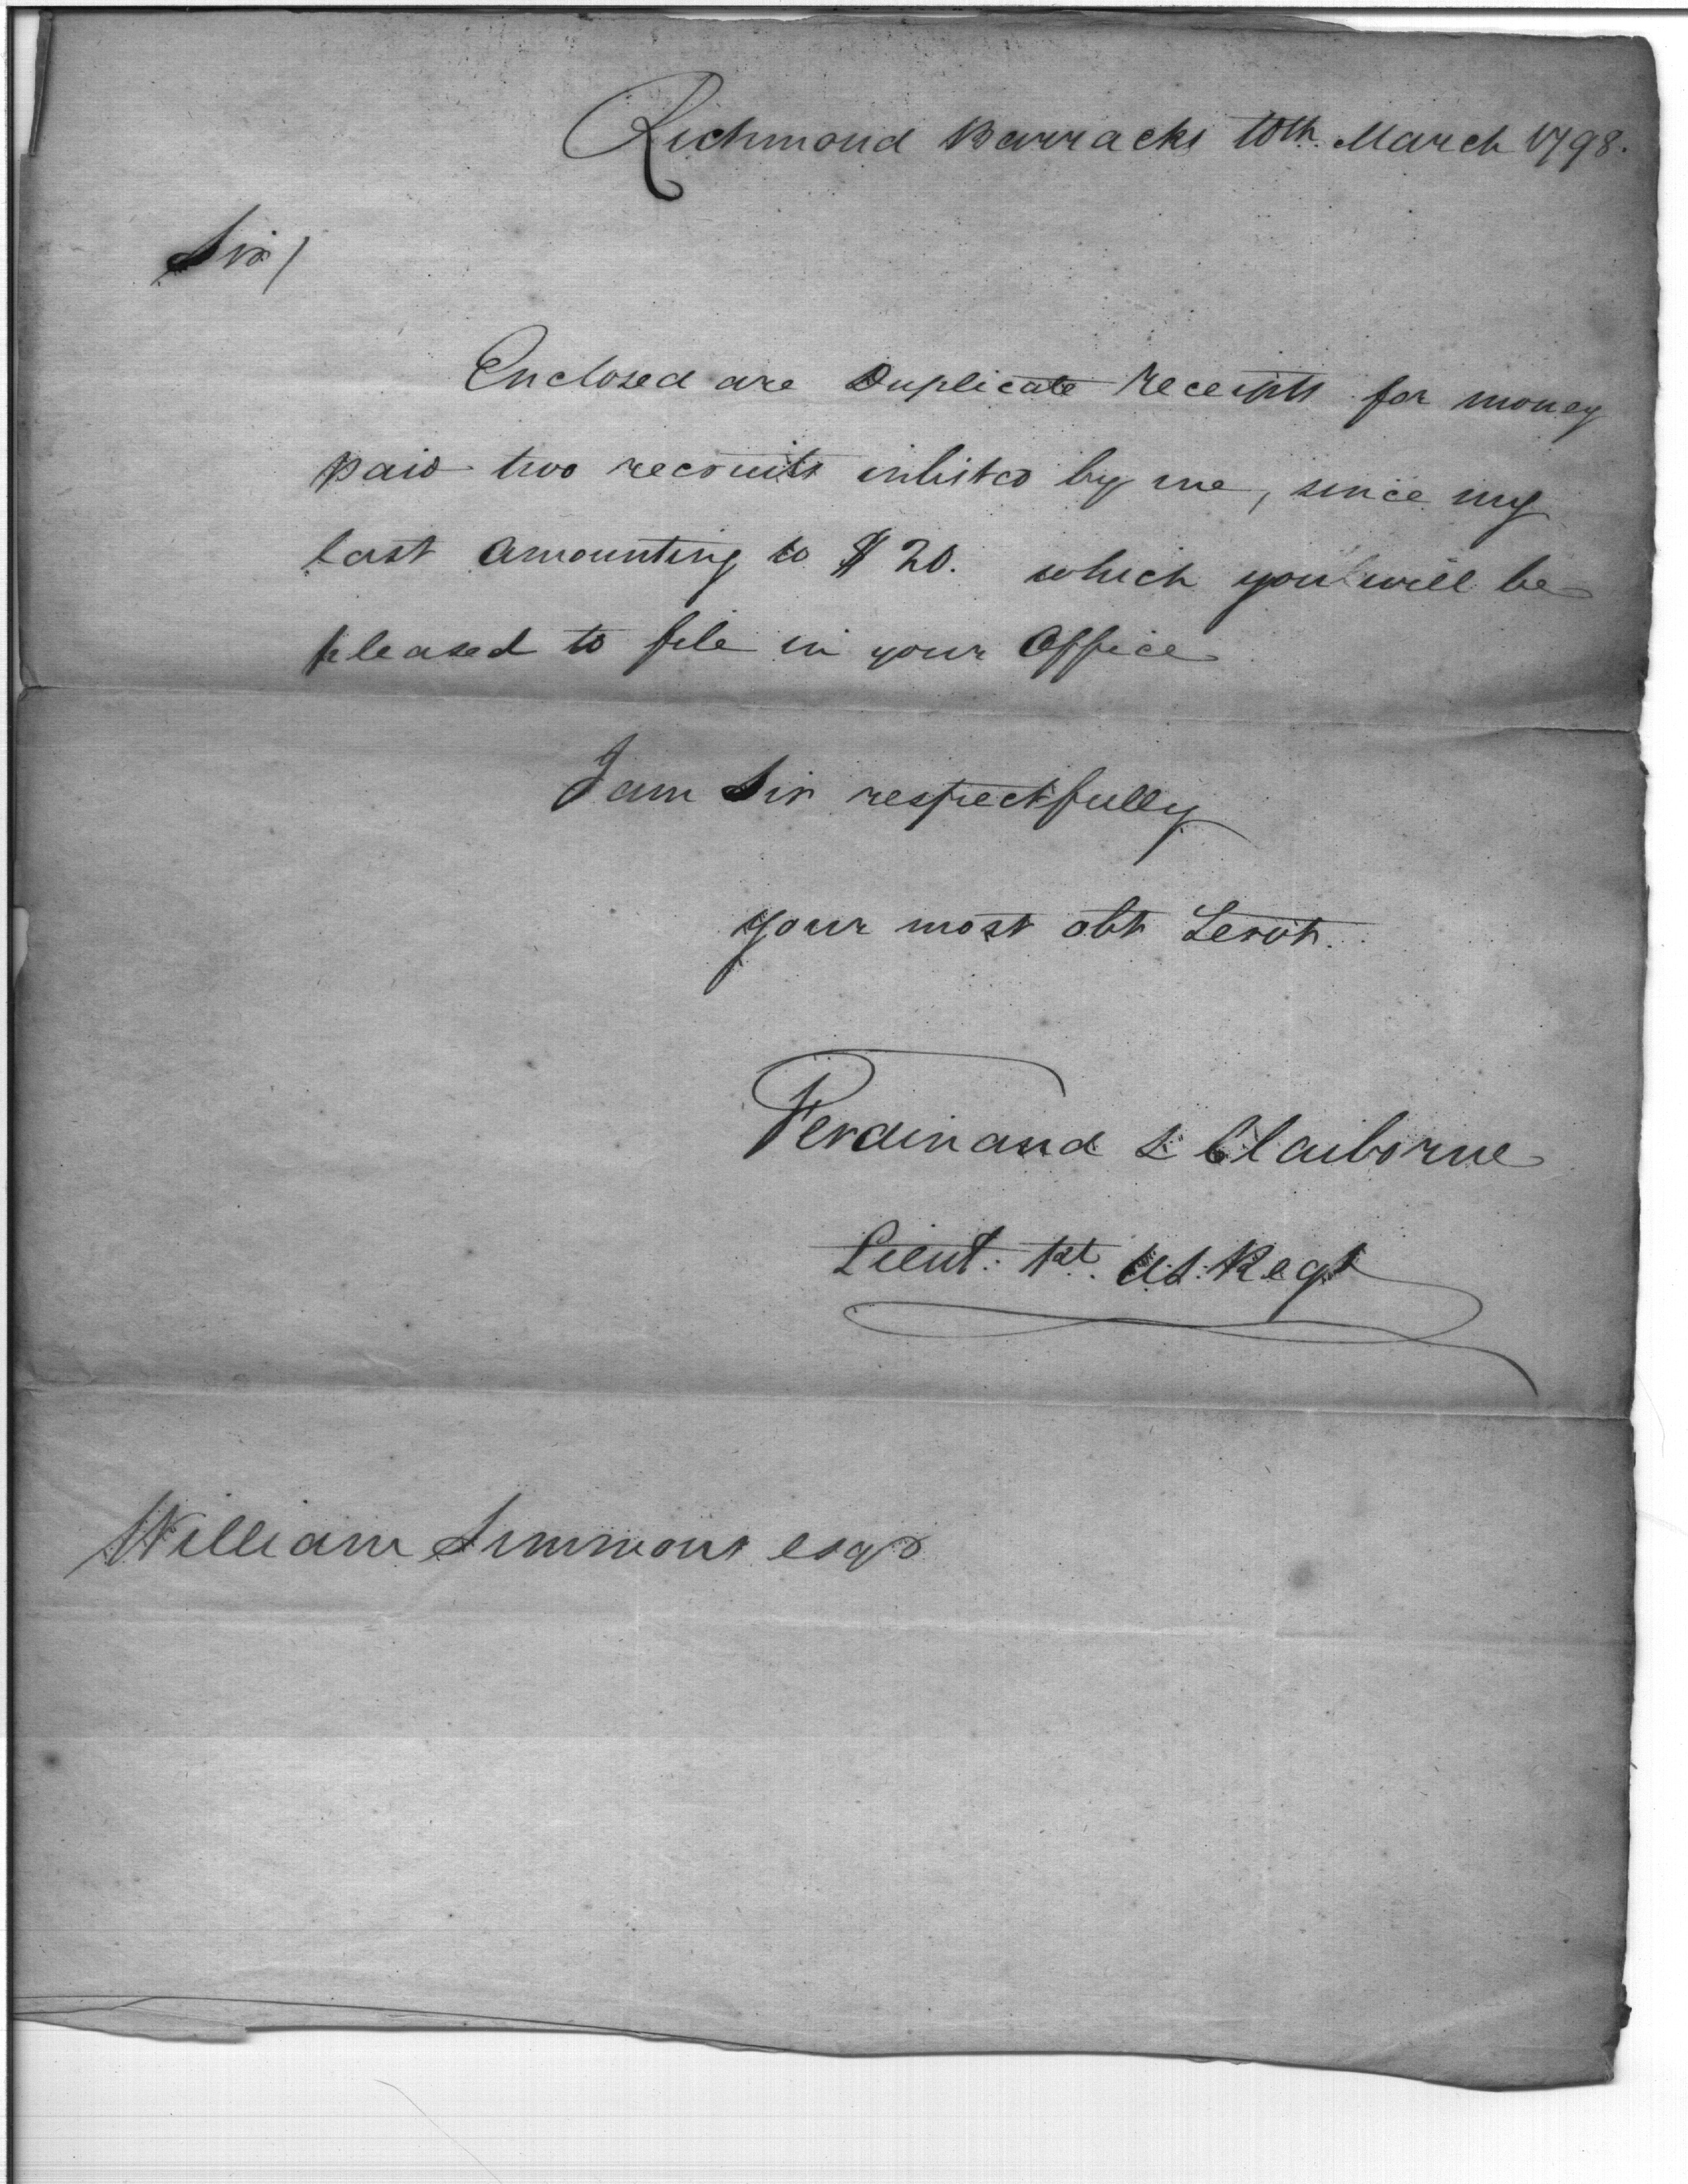 Richmond Barracks 10th. March 1798.
Sir/
Enclosed are Duplicate receipts for money
paid two recruits inlisted by me, since my
last amounting to $20. which you will be
pleased to file in your Office
I am Sir respectfully
your most obt Servt.
Ferdinand L Claiborne
Lieut. 1st. US. Regt
William Simmons esqr